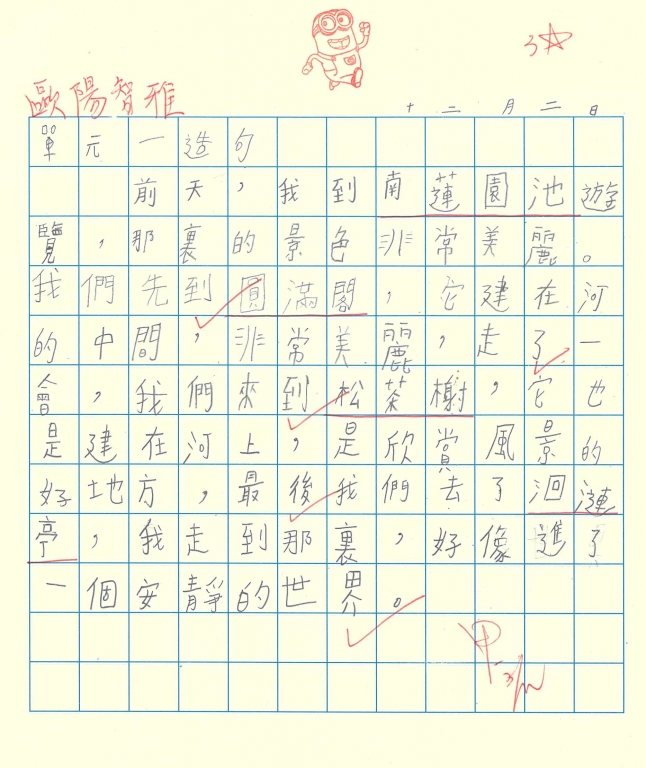 3☆
歐陽智雅
十二月二日
單元一造句
前天，我到南蓮園池遊
覽，那裏的景色非常美麗。
我們先到圓滿閣，它建在河
的中間，非常美麗，走了一
會，我們來到松茶榭，它也
是建在河上，是欣賞風景的
好地方，最後我們去了洄漣
亭，我走到那裏，好像進了
一個安靜的世界。
甲